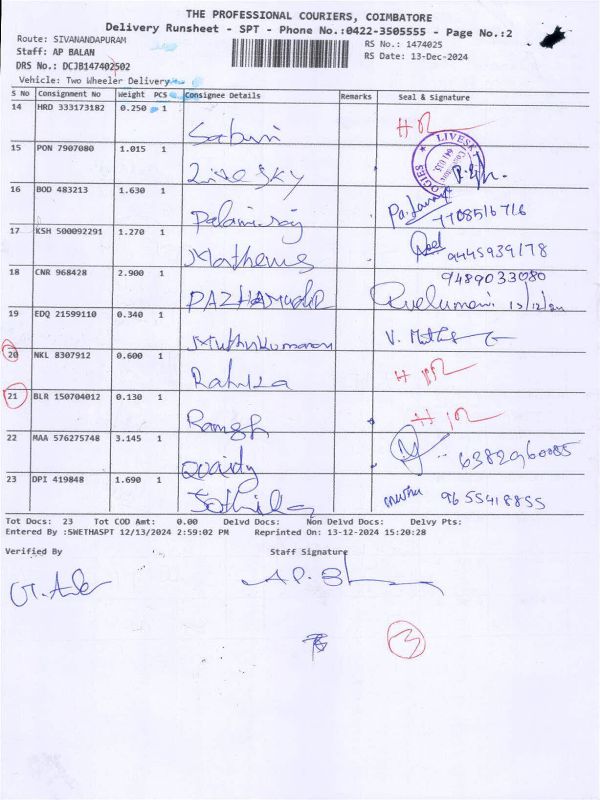 THE PROFESSIONAL COURIERS, COIMBATORE
Delivery Runsheet - SPT - Phone No.:0422-3505555 - Page No.:2
Route: SIVANANDAPURAM
RS No.: 1474025
Staff: AP BALAN
RS Date: 13-Dec-2024
DRS No.: DCJB147402502
Vehicle: Two Wheeler Delivery
S No Consignment No Weight PCS Consignee Details Remarks Seal & Signature
14 HRD 333173182 0.250 1 Sabari
15 PON 7907080 1.015 1 Live sky
16 BOD 483213 1.630 1 Palaniraj 7708516716
17 KSH 500092291 1.270 1 9445939178
18 CNR 968428 2.900 1 9489033080
13/12/24
19 EDQ 21599110 0.340 1 Muthukumaran
20 NKL 8307912 0.600 1
21 BLR 150704012 0.130 1 Ramesh
22 MAA 576275748 3.145 1 6382960085
23 DPI 419848 1.690 1 9655418855
Tot Docs: 23 Tot COD Amt: 0.00 Delvd Docs: Non Delvd Docs: Delvy Pts:
Entered By :SWETHASPT 12/13/2024 2:59:02 PM Reprinted On: 13-12-2024 15:20:28
Verified By Staff Signature
3